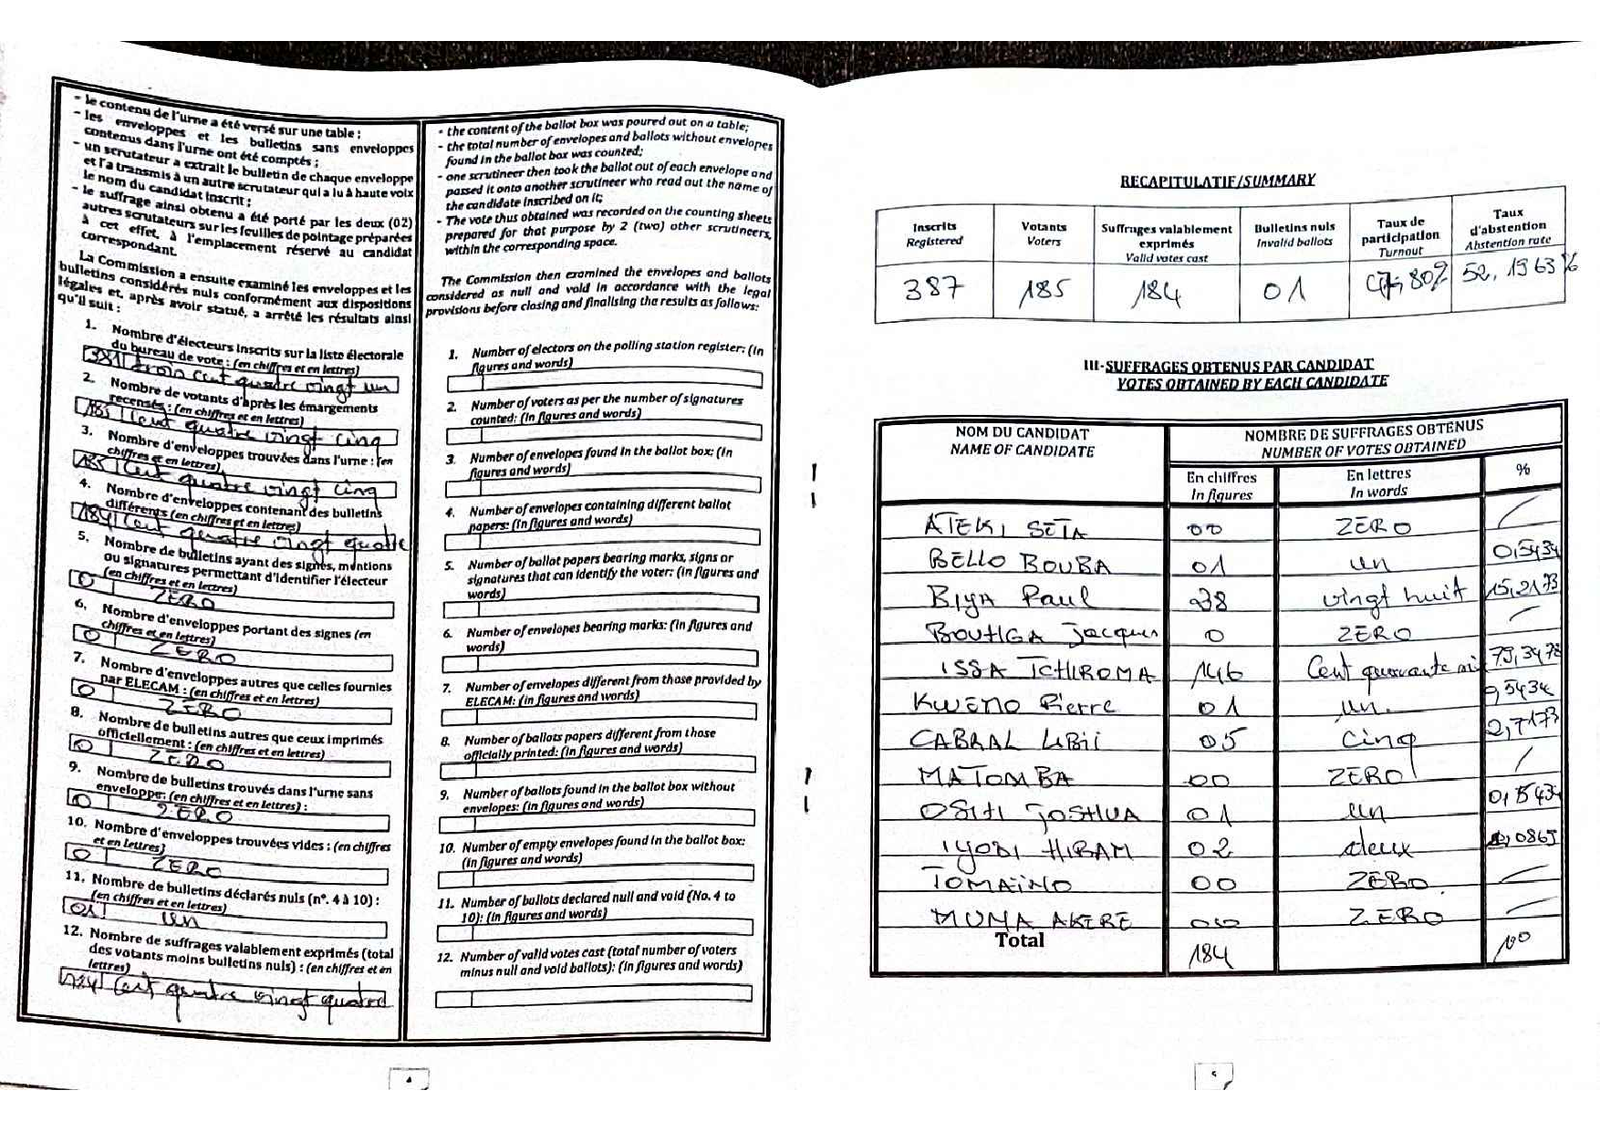 - le contenu de l'urne a été versé sur une table ;
- les enveloppes et les bulletins sans enveloppes
contenus dans l'urne ont été comptés ;
- un scrutateur a extrait le bulletin de chaque enveloppe
et l'a transmis à un autre scrutateur qui a lu à haute voix
le nom du candidat inscrit ;
- le suffrage ainsi obtenu a été porté par les deux (02)
autres scrutateurs sur les feuilles de pointage préparées
à cet effet, à l'emplacement réservé au candidat
correspondant.
La Commission a ensuite examiné les enveloppes et les
bulletins considérés nuls conformément aux dispositions
légales et, après avoir statué, a arrêté les résultats ainsi
qu'il suit :
1. Nombre d'électeurs inscrits sur la liste électorale
du bureau de vote : (en chiffres et en lettres)
381 trois cent quatre vingt un
2. Nombre de votants d'après les émargements
recensés : (en chiffres et en lettres)
185 Cent quatre vingt cinq
3. Nombre d'enveloppes trouvées dans l'urne : (en
chiffres et en lettres)
185 Cent quatre vingt cinq
4. Nombre d'enveloppes contenant des bulletins
différents (en chiffres et en lettres)
184 Cent quatre vingt quatre
5. Nombre de bulletins ayant des signes, mentions
ou signatures permettant d'identifier l'électeur
(en chiffres et en lettres)
0 ZERO
6. Nombre d'enveloppes portant des signes (en
chiffres et en lettres)
0 ZERO
7. Nombre d'enveloppes autres que celles fournies
par ELECAM : (en chiffres et en lettres)
0 ZERO
8. Nombre de bulletins autres que ceux imprimés
officiellement : (en chiffres et en lettres)
0 ZERO
9. Nombre de bulletins trouvés dans l'urne sans
enveloppe: (en chiffres et en lettres) :
0 ZERO
10. Nombre d'enveloppes trouvées vides : (en chiffres
et en lettres)
0 ZERO
11. Nombre de bulletins déclarés nuls (n°. 4 à 10) :
(en chiffres et en lettres)
01 un
12. Nombre de suffrages valablement exprimés (total
des votants moins bulletins nuls) : (en chiffres et en
lettres)
184 Cent quatre vingt
- the content of the ballot box was poured out on a table;
- the total number of envelopes and ballots without envelopes
found in the ballot box was counted;
- one scrutineer then took the ballot out of each envelope and
passed it onto another scrutineer who read out the name of
the candidate inscribed on it;
- The vote thus obtained was recorded on the counting sheets
prepared for that purpose by 2 (two) other scrutineers,
within the corresponding space.
The Commission then examined the envelopes and ballots
considered as null and void in accordance with the legal
provisions before closing and finalising the results as follows:
1. Number of electors on the polling station register: (in
figures and words)
2. Number of voters as per the number of signatures
counted: (In figures and words)
3. Number of envelopes found in the ballot box: (In
figures and words)
4. Number of envelopes containing different ballot
papers: (In figures and words)
5. Number of ballot papers bearing marks, signs or
signatures that can identify the voter: (in figures and
words)
6. Number of envelopes bearing marks: (in figures and
words)
7. Number of envelopes different from those provided by
ELECAM: (in figures and words)
8. Number of ballots papers different from those
officially printed: (in figures and words)
9. Number of ballots found in the ballot box without
envelopes: (in figures and words)
10. Number of empty envelopes found in the ballot box:
(in figures and words)
11. Number of ballots declared null and void (No. 4 to
10): (in figures and words)
12. Number of valid votes cast (total number of voters
minus null and void ballots): (in figures and words)
4
RECAPITULATIF/SUMMARY
Inscrits Registered Votants Voters Suffrages valablement exprimés Valid votes cast Bulletins nuls Invalid ballots Taux de participation Turnout Taux d'abstention Abstention rate
387 185 184 01 47,80% 52,1963%
III-SUFFRAGES OBTENUS PAR CANDIDAT
VOTES OBTAINED BY EACH CANDIDATE
NOM DU CANDIDAT NOMBRE DE SUFFRAGES OBTENUS
NAME OF CANDIDATE NUMBER OF VOTES OBTAINED
En chiffres En lettres %
In figures In words
ATEKI SETA 00 ZERO /
BELLO BOUBA 01 un 0,5434
BIYA Paul 28 vingt huit 15,2173
BOUHGA Jacques 0 ZERO /
ISSA TCHIROMA 146 Cent quarante 79,3478
KWEMO Pierre 01 un. 0,5434
CABRAL LIBII 05 cinq 2,7173
MATOMBA 00 ZERO /
OSIH JOSHUA 01 un 0,5434
IYODI HIRAM 02 deux 1,0869
TOMAINO 00 ZERO /
MUNA AKERE 00 ZERO /
Total 184 100
5